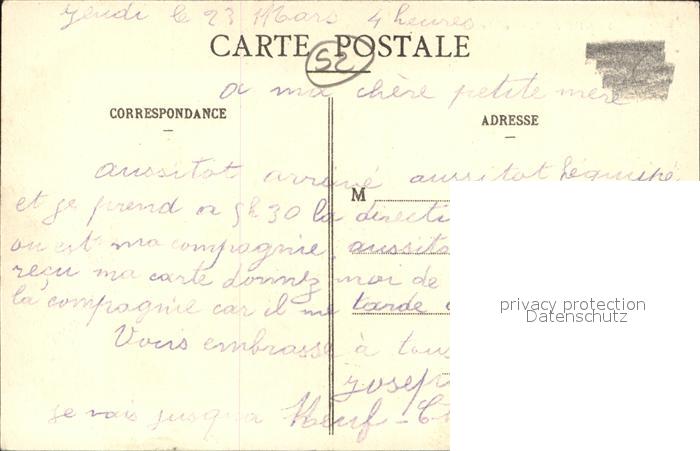 Jeudi le 23 Mars 4 heures
CARTE POSTALE
52
a ma chère petite mère
CORRESPONDANCE
ADRESSE
aussitot arrivé aussitot équipé
M
et je prend a 5h30 la directi
ou est ma compagnie, aussito
reçu ma carte donnez moi de
la compagnie car il me tarde
privacy protection
Datenschutz
Vous embrasse à tous
Josep
je vais jusqua Neuf-Ch